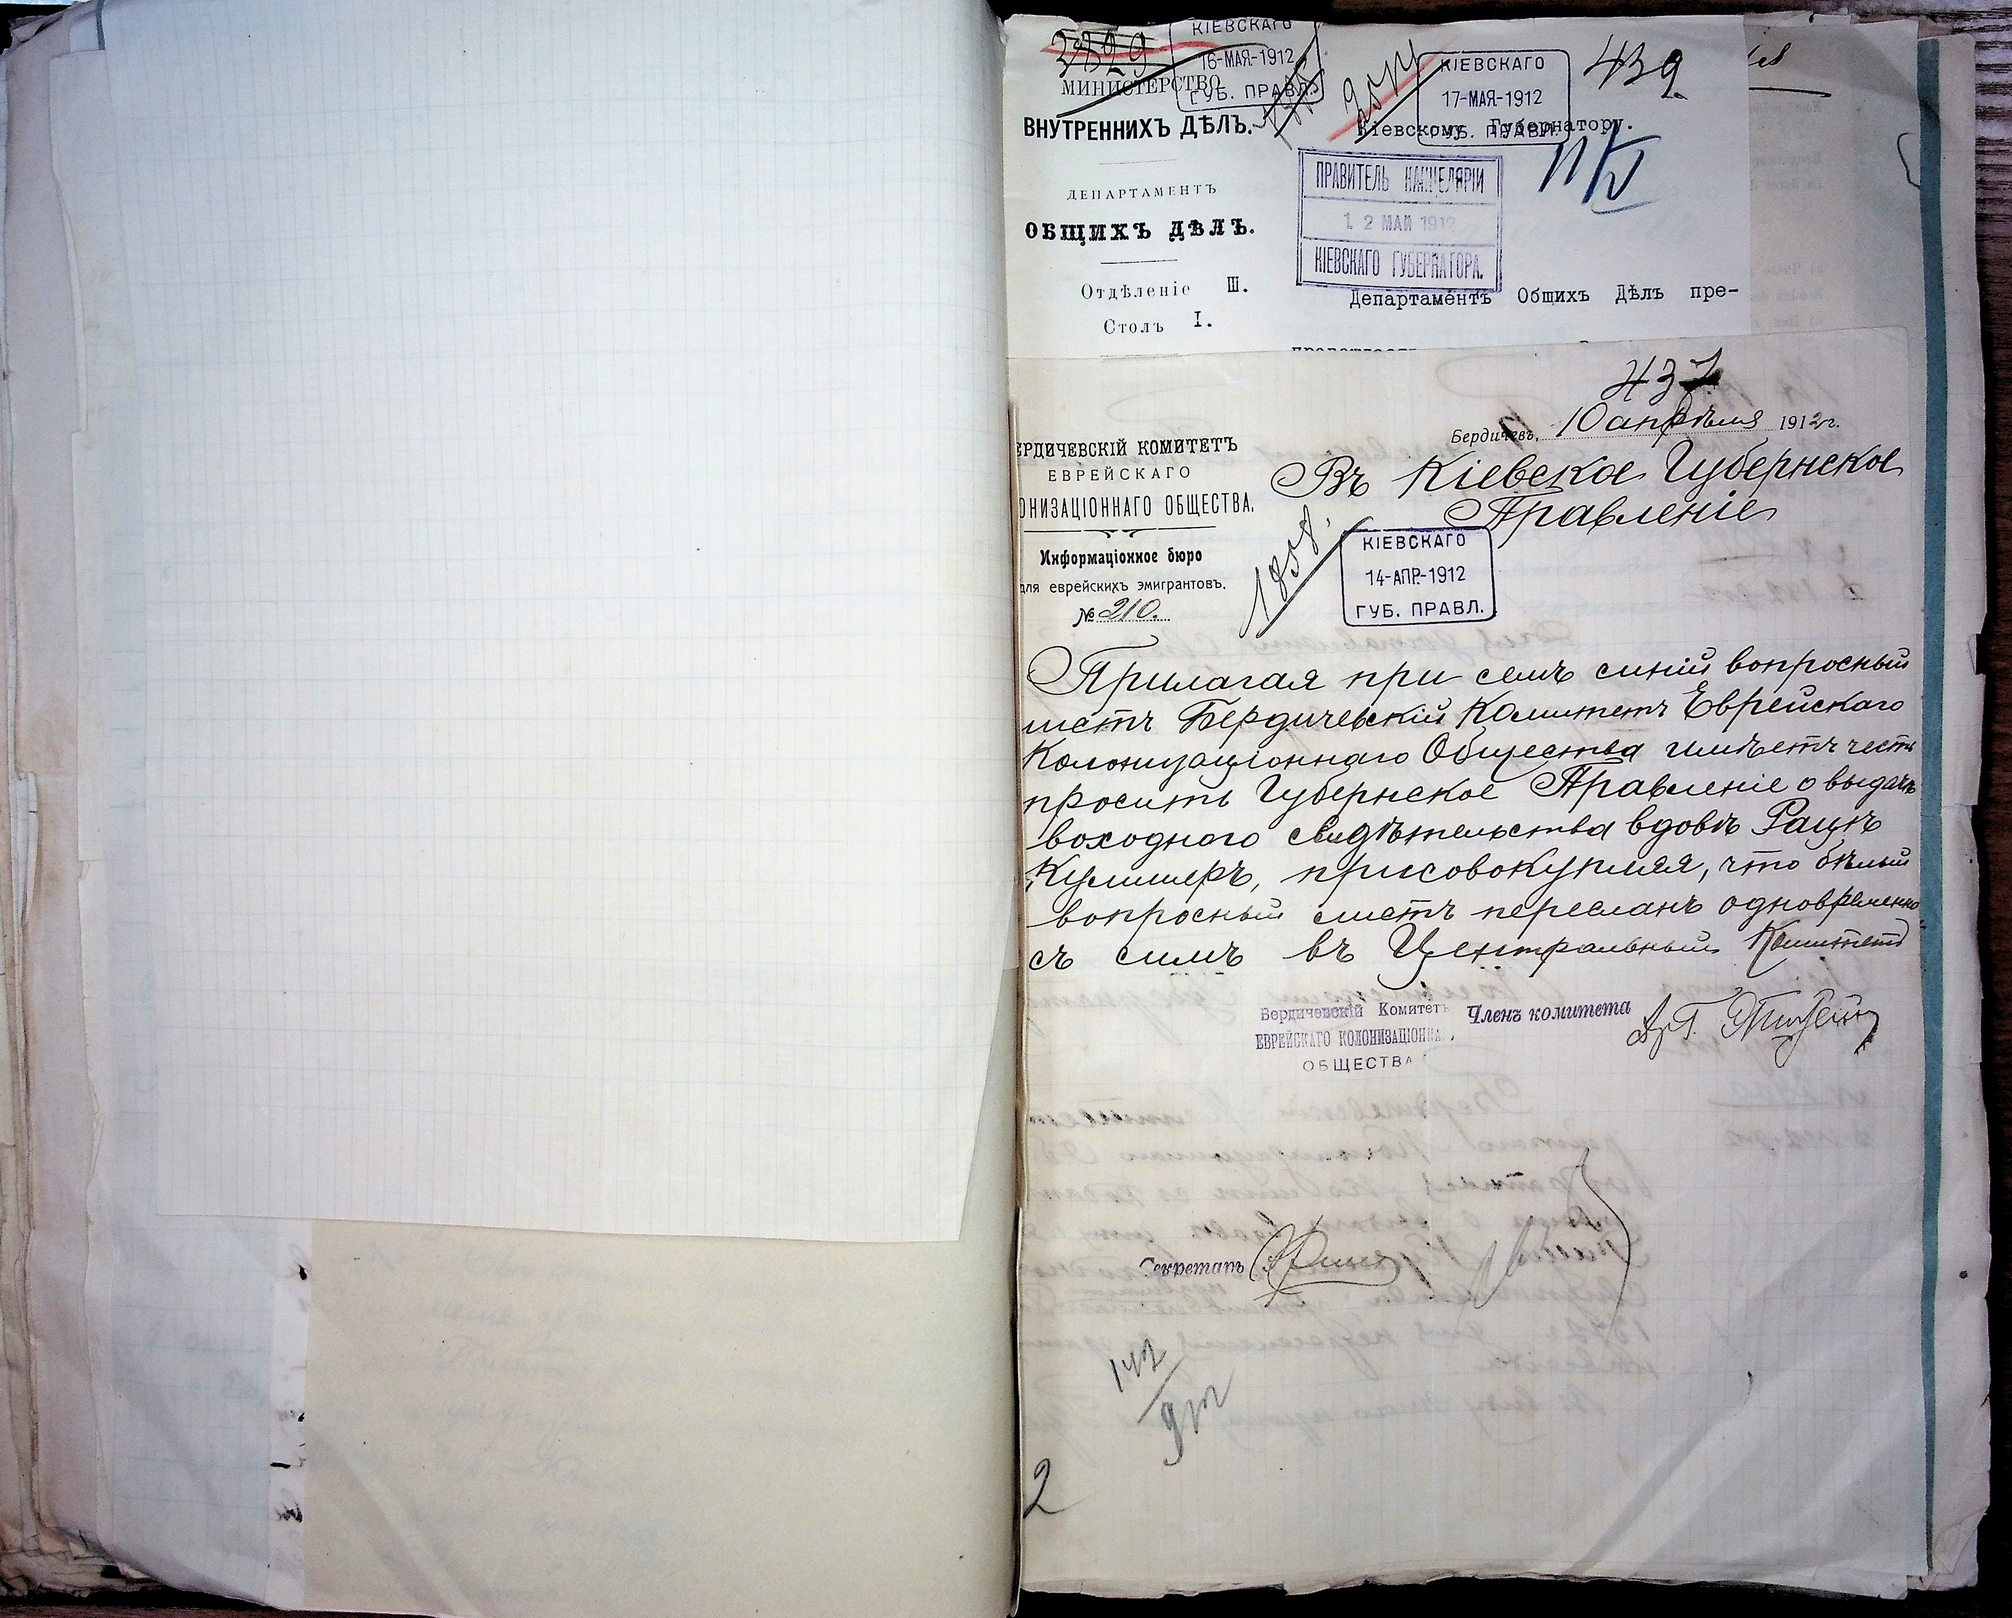 2829
КІЕВСКАГО
16-МАЯ-1912
ГУБ. ПРАВЛ.
КІЕВСКАГО
17-МАЯ-1912
ГУБ. ПРАВЛ.
439
МИНИСТЕРСТВО
ВНУТРЕННИХЪ ДѢЛЪ.
Кіевскому Губернатору.
ДЕПАРТАМЕНТЪ
ОБЩИХЪ ДѢЛЪ.
ПРАВИТЕЛЬ КАНЦЕЛЯРІИ
12 МАЙ 1912
КІЕВСКАГО ГУБЕРНАТОРА.
Отдѣленіе III.
Столъ I.
Департаментъ Общихъ Дѣлъ пре-
437
Бердичев, 10 апрѣля 1912 г.
ЕРДИЧЕВСКІЙ КОМИТЕТЪ
ЕВРЕЙСКАГО
ОНИЗАЦІОННАГО ОБЩЕСТВА.
Информаціонное бюро
для еврейскихъ эмигрантовъ.
№ 210.
Въ Кіевское Губернское
Правленіе
1858.
КІЕВСКАГО
14-АПР.-1912
ГУБ. ПРАВЛ.
Прилагая при семъ синій вопросный
листъ Бердичевскій Комитетъ Еврейскаго
Колонизаціоннаго Общества имѣетъ честь
просить Губернское Правленіе о выдачѣ
выходного свидѣтельства вдовѣ Рацѣ
Кулишеръ, присовокупляя, что бѣлый
вопросный листъ пересланъ одновременно
съ симъ въ Центральный Комитетъ
Бердичевскій Комитетъ
ЕВРЕЙСКАГО КОЛОНИЗАЦІОННА
ОБЩЕСТВА
Членъ комитета
Секретарь
142
2